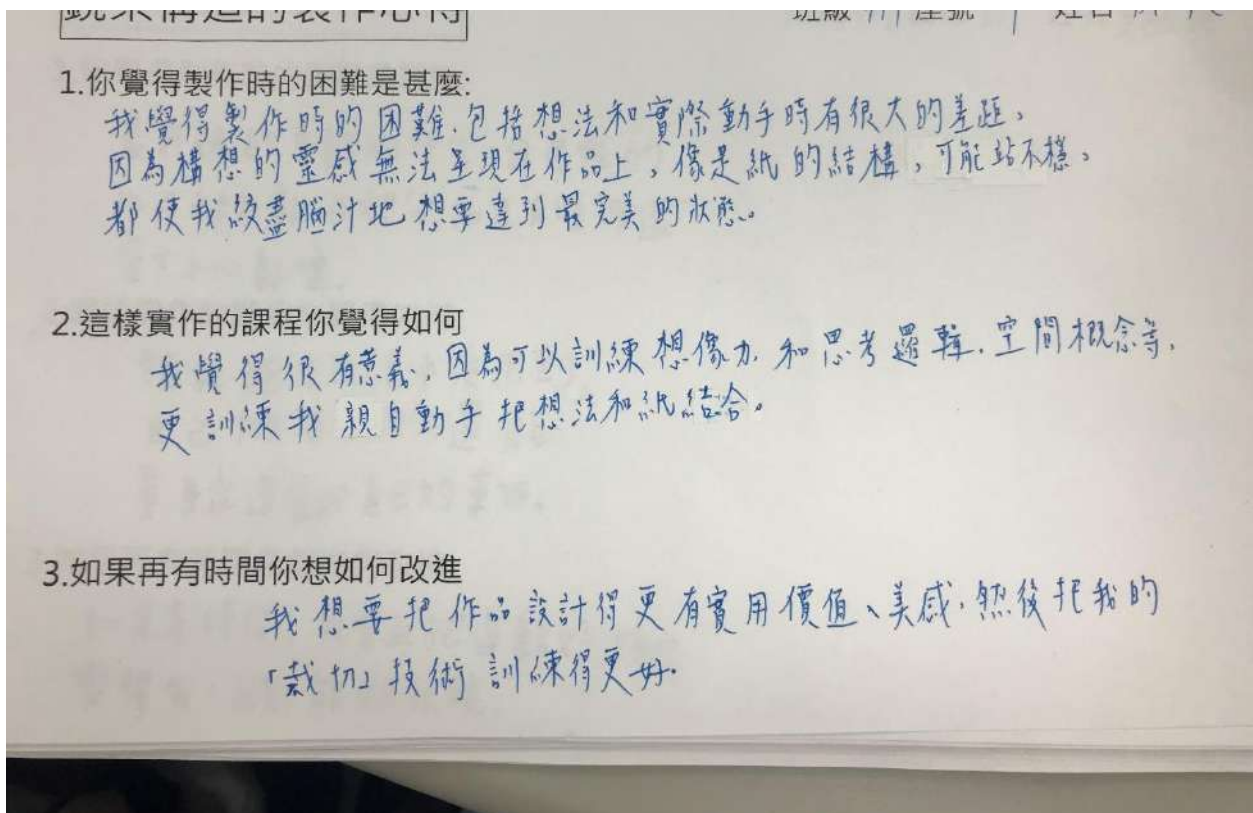 構造的製作心得
班級 座號 姓名
1.你覺得製作時的困難是甚麼:
我覺得製作時的困難.包括想法和實際動手時有很大的差距,
因為構想的靈感無法呈現在作品上,像是紙的結構,可能站不穩,
都使我絞盡腦汁地想要達到最完美的狀態。
2.這樣實作的課程你覺得如何
我覺得很有意義,因為可以訓練想像力.和思考邏輯.空間概念等,
更訓練我親自動手把想法和紙結合。
3.如果再有時間你想如何改進
我想要把作品設計得更有實用價值、美感,然後把我的
「裁切」技術訓練得更好.